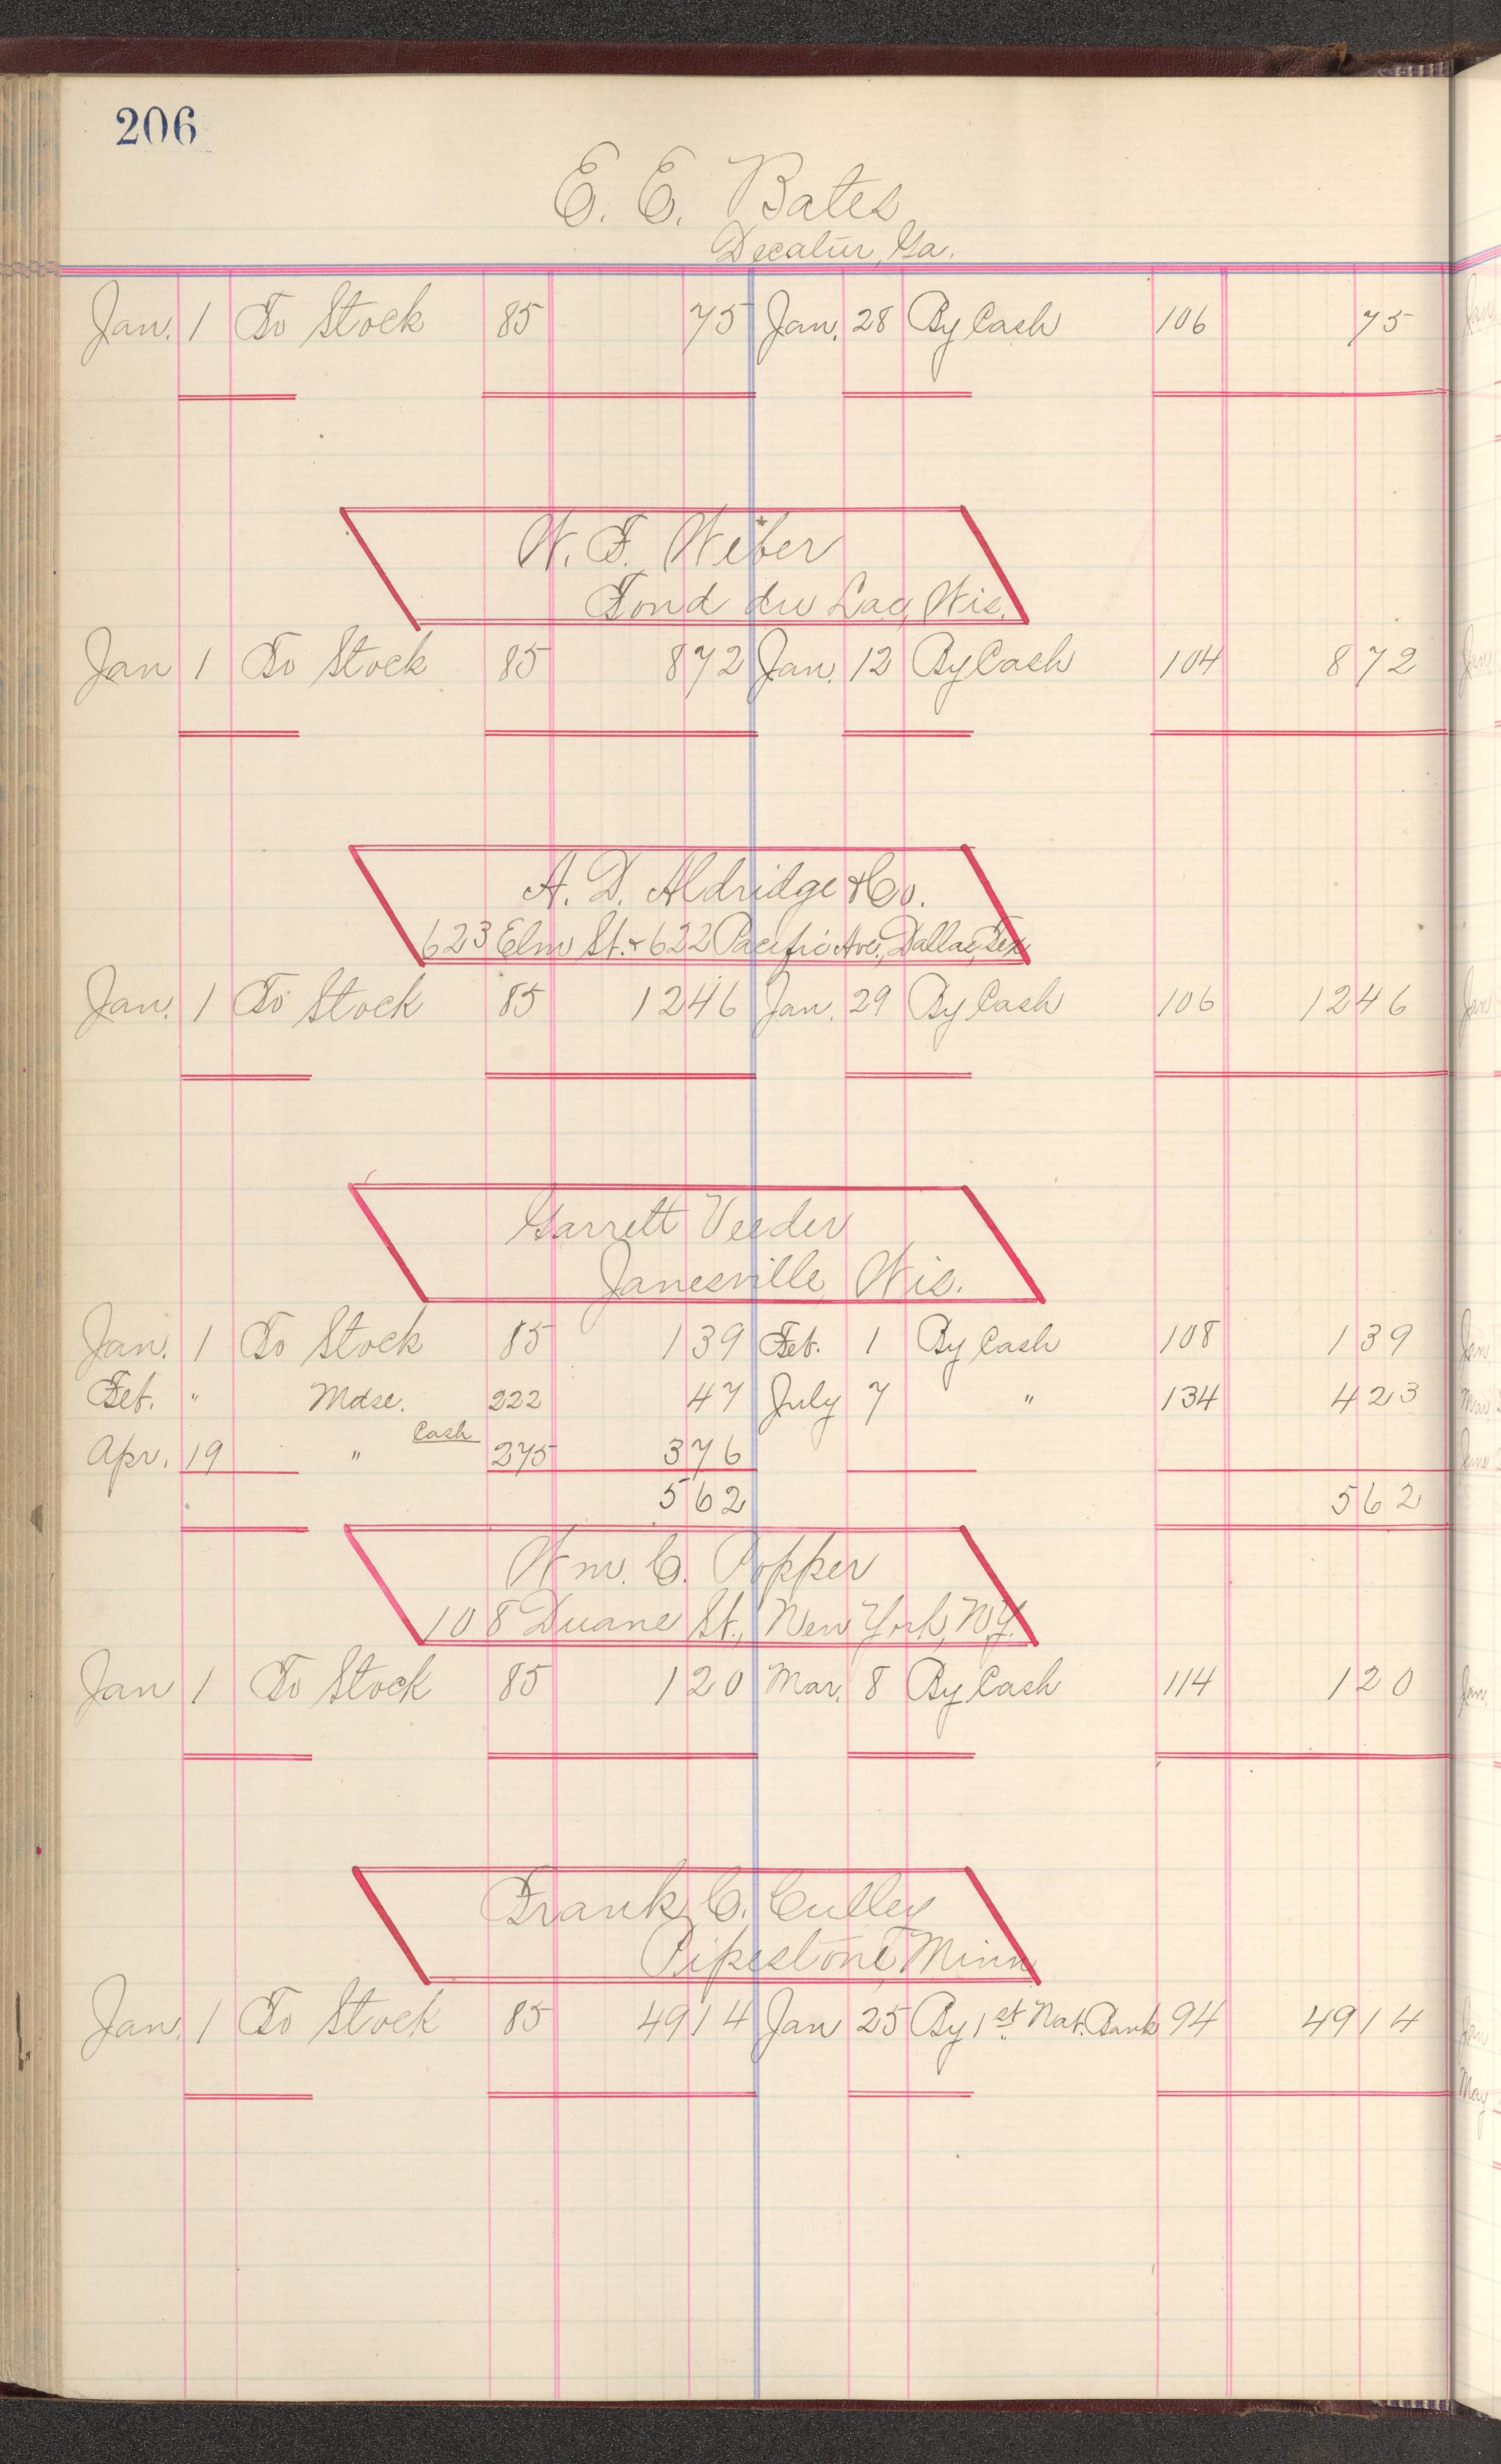 206
E. E. Bates
Decatur, Ga.
Jan. 1 To Stock 85 75 Jan. 28 By Cash 106 75
W. F. Weber
Fond du Lac, Wis.
Jan 1 To Stock 85 872 Jan. 12 By Cash 104 872
A. D. Aldridge & Co.
623 Elm St. & 622 Pacific Ave., Dallas, Tex
Jan. 1 To Stock 85 1246 Jan. 29 By Cash 106 1246
Garrett Veeder
Janesville, Wis.
Jan. 1 To Stock 85 139 Feb. 1 By Cash 108 139
Feb. " Mdse. 222 47 July 7 " 134 423
Cash
Apr. 19 " 275 376
562 562
Wm. C. Popper
108 Duane St., New York, N.Y.
Jan 1 To Stock 85 120 Mar. 8 By Cash 114 120
Frank C. Culley
Pipestone, Minn
Jan. 1 To Stock 85 4914 Jan 25 By 1st Nat. Bank 94 4914